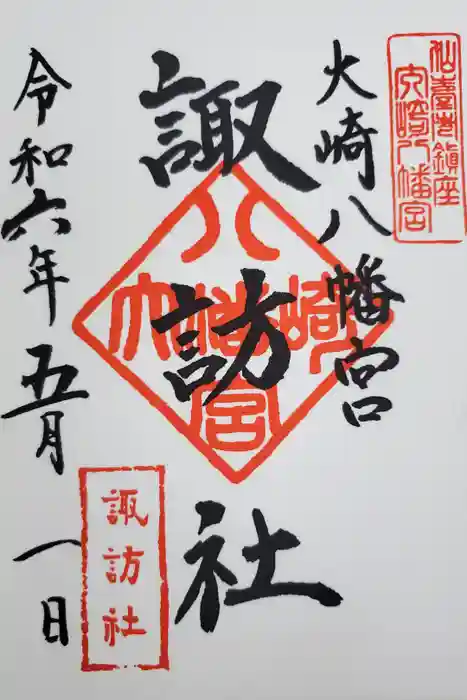 仙臺総鎮座
大崎八幡宮
大崎八幡宮
諏訪社
大崎八幡宮
諏訪社
令和六年五月一日